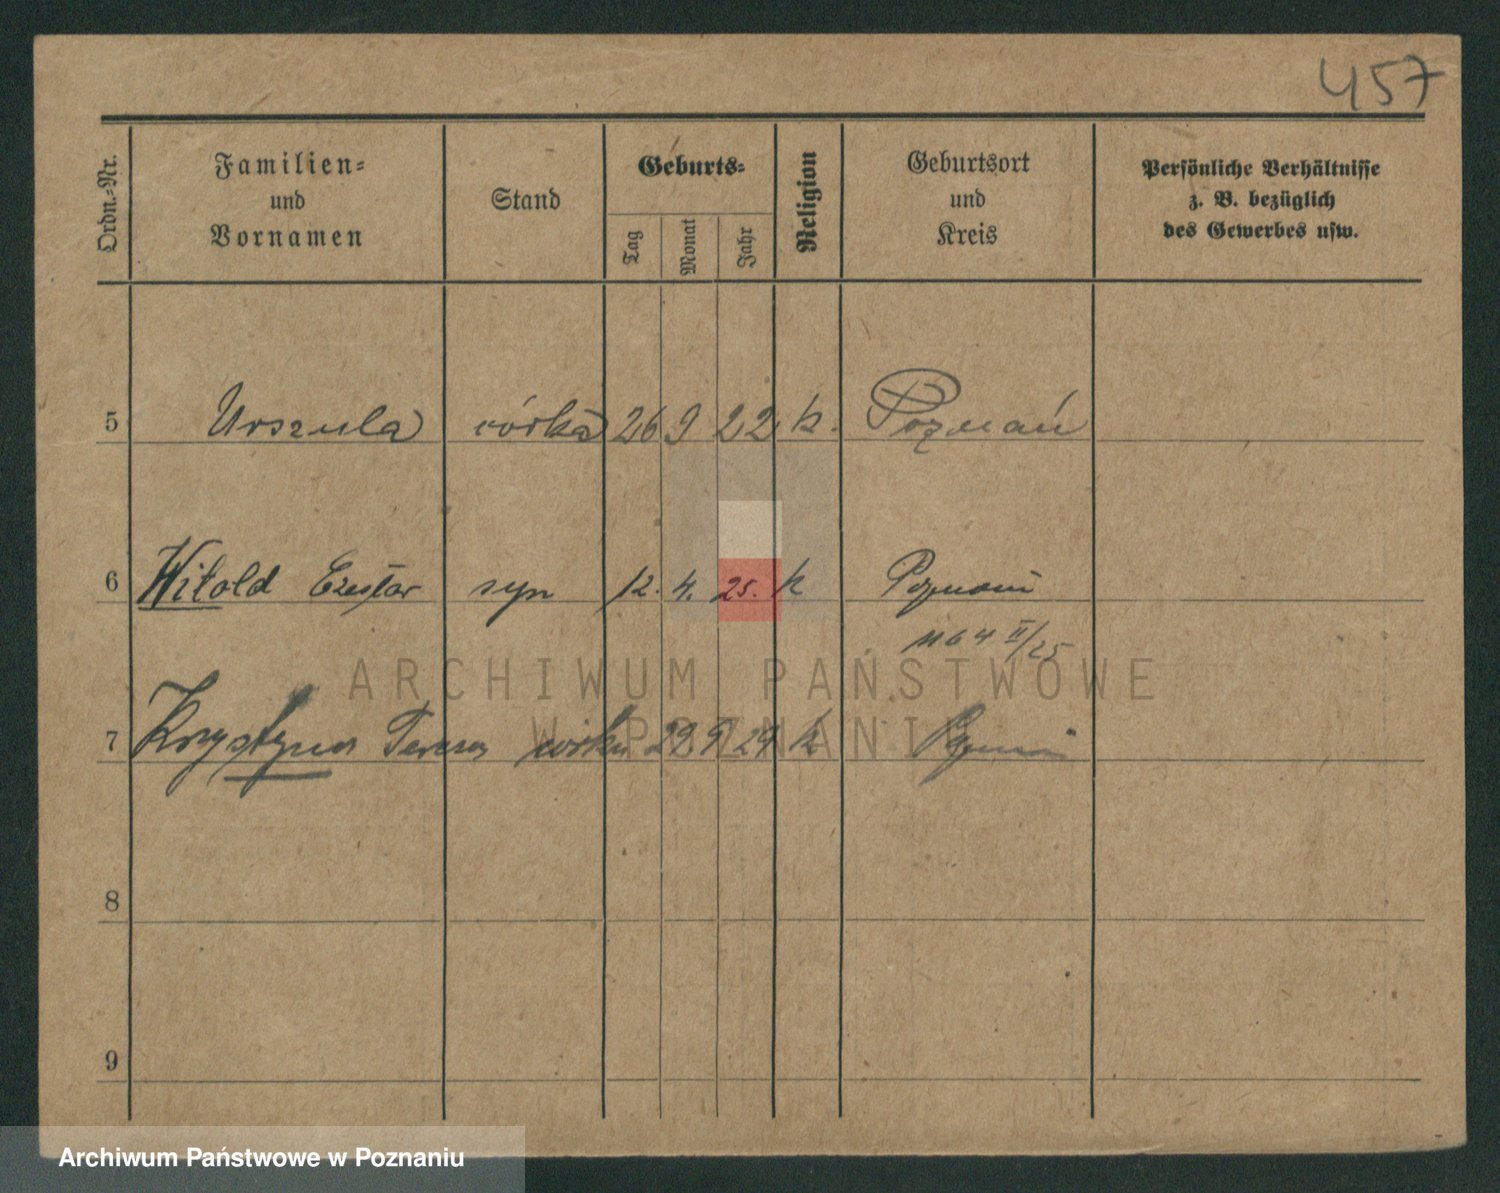 457
Ordn.-Nr. Familien- und Vornamen Stand Geburts- Tag Monat Jahr Religion Geburtsort und Kreis Persönliche Verhältnisse z. B. bezüglich des Gewerbes usw.
5 Urszula córka 26 9 22 k. Poznań
6 Witold Czesław syn 12. 4. 25. k Poznań
1164 II/25
ARCHIWUM PAŃSTWOWE
W POZNANIU
7 Krystyna Teresa córka 29 9 29 k Poznań
8
9
Archiwum Państwowe w Poznaniu